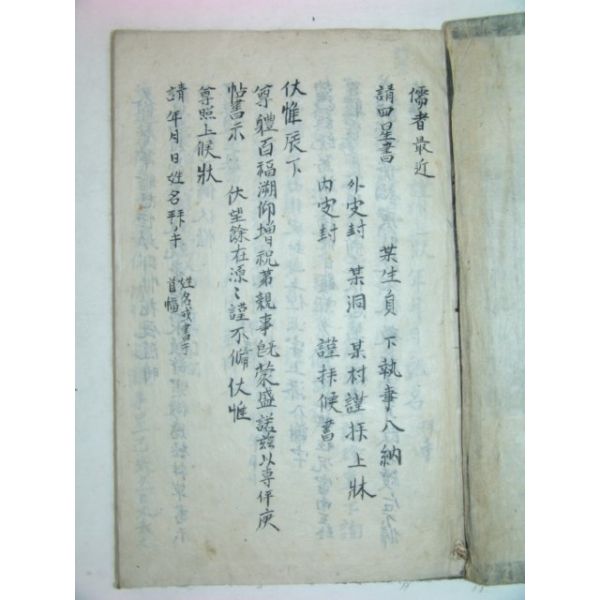 儒者最近
請四星書 某生員 下執事入納
外皮封 某洞 某村謹拜上狀
內皮封 謹拜候書
伏惟辰下
尊體百福溯仰增祝第親事旣蒙盛諾玆以專伻庚
帖書示 伏望餘在源〻謹不備伏惟
尊照上候狀
請年月日姓名拜手
姓名或書于
首幅